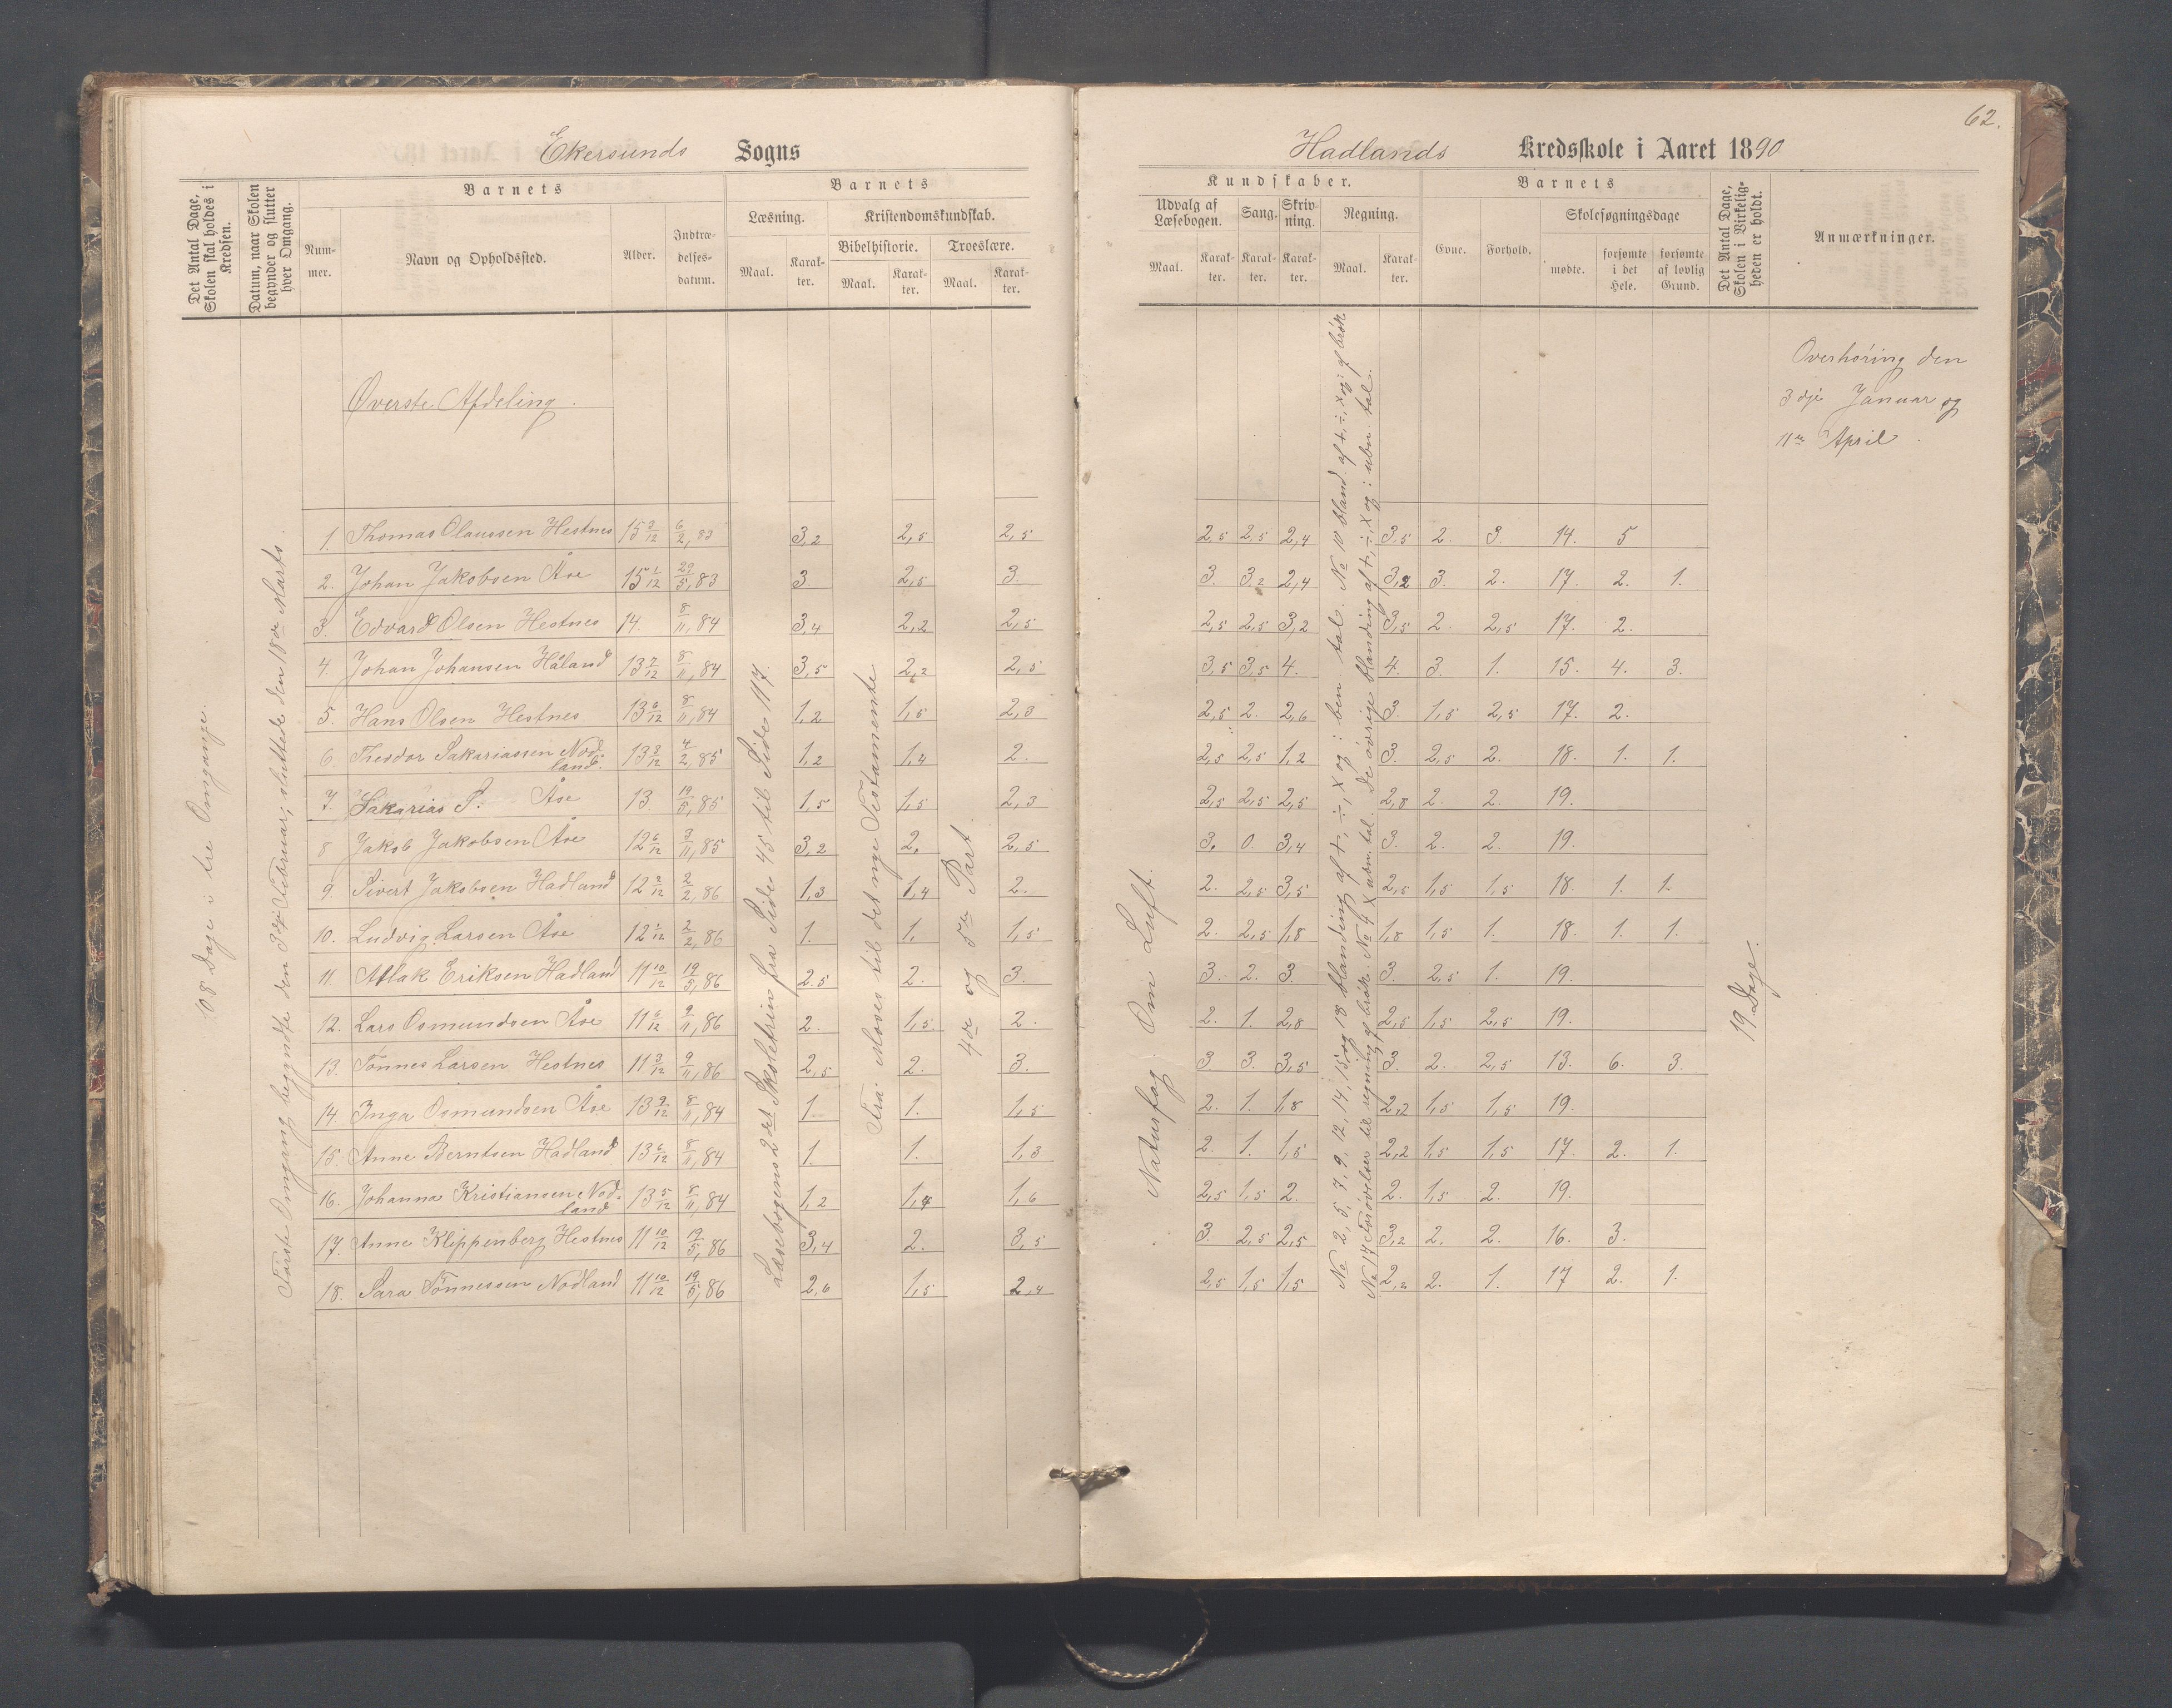 62.
Ekersunds Sogns
Hadlands Kredsskole i Aaret 1890
Det Antal Dage, Skolen skal holdes i Kredsen.
Datum, naar Skolen begynder og slutter hver Omgang.
Barnets
Num- mer.
Navn og Opholdssted.
Alder.
Indtræ- delses- datum.
Barnets
Læsning.
Maal.
Karak- ter.
Kristendomskundskab.
Bibelhistorie.
Maal.
Karak- ter.
Troeslære.
Maal.
Karak- ter.
Kundskaber.
Udvalg af Læsebogen.
Maal.
Karak- ter.
Sang.
Karak- ter.
Skriv- ning.
Karak- ter.
Regning.
Maal.
Karak- ter.
Barnets
Evne.
Forhold.
Skolesøgningsdage
mødte.
forsømte i det Hele.
forsømte af lovlig Grund.
Det Antal Dage, Skolen i Virkelig- heden er holdt.
Anmærkninger.
Øverste Afdeling.
Overhøring den
3dje Januar og
11te April.
108 Dage i tre Omgange.
Første Omgang begyndte den 3die Februar, sluttede den 18de Marts.
Læsebogens 2det Skoletrin fra Side 45 til Side 117.
Fra Moses til det nye Testamente
4de og 5te Part.
Naturfag. Om Luft.
No 2, 5, 7, 9, 12, 14, 15 og 18 blanding af +, ÷, × og : ben tal. No 10 bland. af +, ÷, × og : af brøk
No 17 Forøvelser til regning af brøk. No 4 × ubn. tal. De øvrige blanding af +, ÷, × og : ubn. tal.
19 Dage.
1. Thomas Olaussen Hestnes 15 3/12 6/2, 83 3,2 2,5 2,5 2,5 2,5 2,4 3,5 2. 3. 14. 5
2. Johan Jakobsen Åse 15 1/12 29/5, 83 3. 2,5 3. 3. 3,2 2,4 3,2 3. 2. 17. 2. 1.
3. Edvard Olsen Hestnes 14. 8/11, 84 3,4 2,2 2,5 2,5 2,5 3,2 3,5 2. 2,5 17. 2.
4. Johan Johansen Håland 13 7/12 8/11, 84 3,5 2,2 2,5 3,5 3,5 4. 4. 3. 1. 15. 4. 3.
5. Hans Olsen Hestnes 13 6/12 8/11, 84 1,2 1,5 2,3 2,5 2. 2,6 3. 1,5 2,5 17. 2.
6. Theodor Sakariassen Nod- land. 13 3/12 4/2, 85 1,2 1,4 2. 2,5 2,5 1,2 3. 2,5 2. 18. 1. 1.
7. Sakarias S. Åse 13. 19/5, 85 1,5 1,5 2,3 2,5 2,5 2,5 2,8 2. 2. 19.
8 Jakob Jakobsen Åse 12 6/12 3/11, 85 3,2 2, 2,5 3. 0. 3,4 3. 2. 2. 19.
9. Sivert Jakobsen Hadland 12 2/12 2/2, 86 1,3 1,4 2. 2. 2,5 3,5 2,5 1,5 1,5 18. 1. 1.
10. Ludvig Larsen Åse 12 1/12 2/2, 86 1. 1. 1,5 2. 2,5 1,8 1,8 1,5 1. 18. 1. 1.
11. Atlak Eriksen Hadland 11 10/12 19/5, 86 2,5 2. 3. 3. 2. 3. 3. 2,5 1. 19.
12. Lars Osmundsen Åse 11 6/12 9/11, 86 2. 1,5 2. 2. 1. 2,8 2,5 1,5 2,5 19.
13. Tønnes Larsen Hestnes 11 3/12 9/11, 86 2,5 2. 3. 3 3. 3,5 3. 2. 2,5 13. 6. 3.
14. Inga Osmundsen Åse 13 9/12 8/11, 84 1 1. 1,5 2. 1. 1,8 2,2 1,5 1,5 19.
15. Anne Berntsen Hadland 13 6/12 8/11, 84 1. 1. 1,3 2. 1. 1,5 2,2 1,5 1,5 17. 2. 1.
16. Johanna Kristiansen Nod- land 13 5/12 8/11, 84 1,2 1,4 1,6 2,5 1,5 2. 2. 1,5 2. 19.
17. Anne Klippenberg Hestnes 11 10/12 19/5, 86 3,4 2. 3,5 3. 2,5 2,5 3,2 2. 2. 16. 3.
18. Sara Tønnessen Nodland 11 10/12 19/5, 86 2,6 1,5 2,4 2,5 1,5 1,5 2,2 2. 1. 17 2. 1.